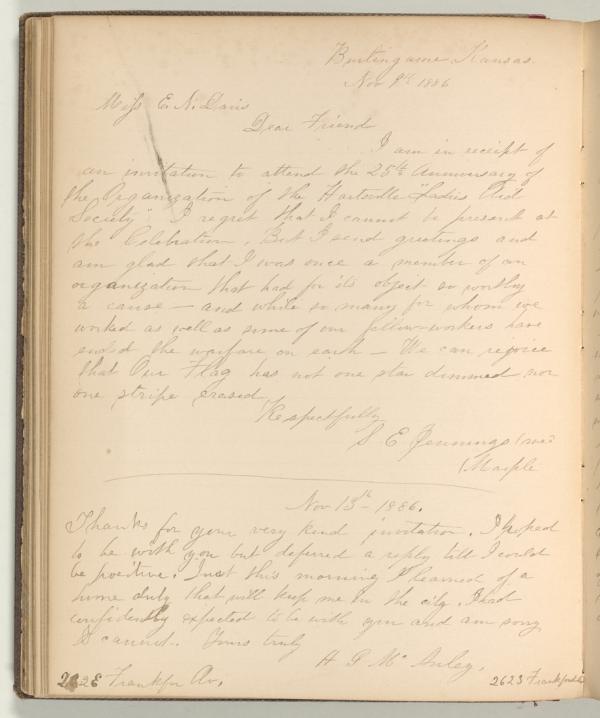 Burlingame Kansas.
Nov 9th 1886
Miss E. N. Davis
Dear Friend
I am in receipt of
an invitation to attend the 25th Anniversary of
the Organization of the Hartsville "Ladies Aid
Society" I regret that I cannot be present at
the Celebration. But I send greetings and
am glad that I was once a member of an
organization that had for its object so worthy
a cause — and while so many for whom we
worked as well as some of our fellow-workers have
ended the warfare on earth — We can rejoice
that Our Flag has not one star dimmed nor
one stripe erased.
Respectfully
S. E. Jennings (nee)
(Marple
Nov 13th - 1886.
Thanks for your very kind invitation. I hoped
to be with you but deferred a reply till I could
be positive. Just this morning I learned of a
home duty that will keep me in the city. I had
confidently expected to be with you and am sorry
I cannot. Yours truly
H. G. Mc
Frankfor Av.
2623 Frankford